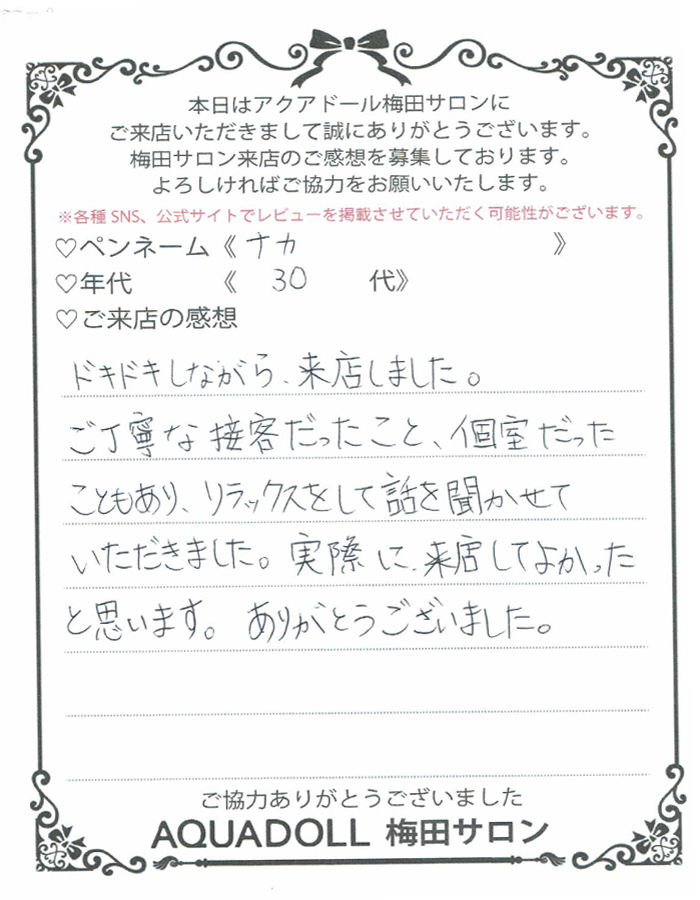 本日はアクアドール梅田サロンに
ご来店いただきまして誠にありがとうございます。
梅田サロン来店のご感想を募集しております。
よろしければご協力をお願いいたします。
※各種SNS、公式サイトでレビューを掲載させていただく可能性がございます。
♡ペンネーム《 ナカ 》
♡年代 《 30 代》
♡ご来店の感想
ドキドキしながら、来店しました。
ご丁寧な接客だったこと、個室だった
こともあり、リラックスをして話を聞かせて
いただきました。実際に、来店してよかった
と思います。ありがとうございました。
ご協力ありがとうございました
AQUADOLL 梅田サロン